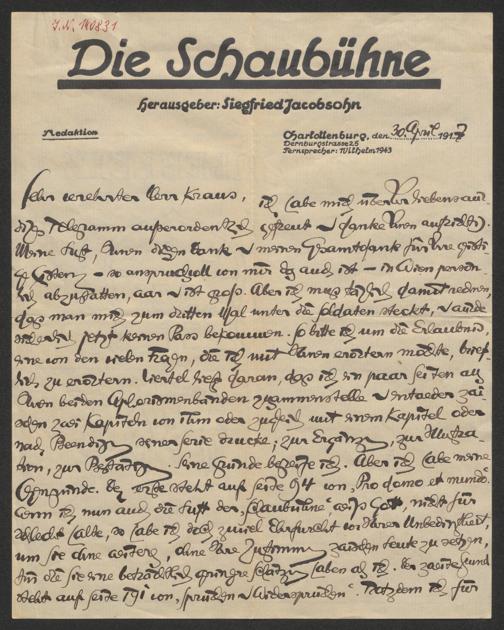 J.N. 140831
Die Schaubühne
Herausgeber: Siegfried Jacobsohn
Redaktion
Charlottenburg, den 30. April 1917
Dernburgstrasse 25
Fernsprecher: Wilhelm 1943
Sehr verehrter Herr Kraus, ich habe mich über Ihr liebenswür-
diges Telegramm außerordentlich gefreut u danke Ihnen aufrichtig.
Meine Lust, Ihnen diesen Dank u meinen Gesamtdank für Ihre
– so anspruchsvoll von mir das auch ist – in Wien persön-
lich abzustatten, war u ist groß. Aber ich muß täglich damit rechnen,
daß man mich zum dritten Mal unter die Soldaten steckt, u würde
jetzt keinen Pass bekommen. So bitte ich um die Erlaubnis,
eine von den vielen Fragen, die ich mit Ihnen erörtern möchte, brief-
lich zu erörtern. daran, daß ich ein paar Seiten aus
Ihren beiden Aphorismenbänden zusammenstelle u entweder zwi-
schen zwei Kapiteln von ihm oder zugleich mit einem Kapitel oder
nach Beendigung seiner Serie drucke; zur Ergänzung, zur Illustra-
tion, zur Bestätigung. Seine Gründe begreife ich. Aber ich habe meine
Gegengründe. Der erste steht auf Seite 94 von „Pro domo et mundo“.
Wenn ich nun auch die Luft der „Schaubühne“, weiß Gott, nicht für
schlecht halte, so habe ich doch zuviel Ehrfurcht vor Ihrer Unbedingtheit,
um Sie ohne weiteres, ohne Ihre Zustimmung zwischen Leute zu setzen,
für die Sie eine beträchtlich geringere Schätzung haben als ich. Der zweite Grund
steht auf Seite 191 von „Sprüchen u Widersprüchen“. Trotzdem ich für